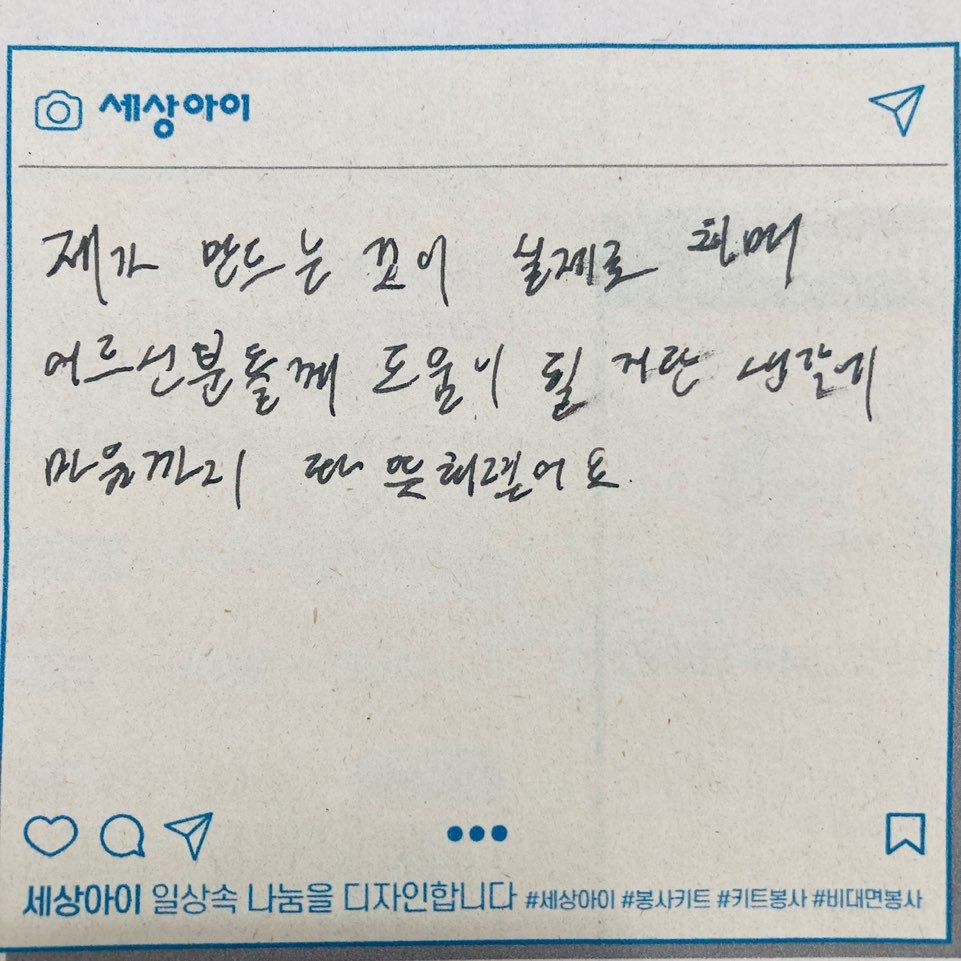 세상아이
제가 만드는 꼬이 실제로 치매
어르신분들께 도움이 될 거란 생각에
마음까지 따뜻해졌어요.
세상아이 일상속 나눔을 디자인합니다 #세상아이 #봉사키트 #키트봉사 #비대면봉사